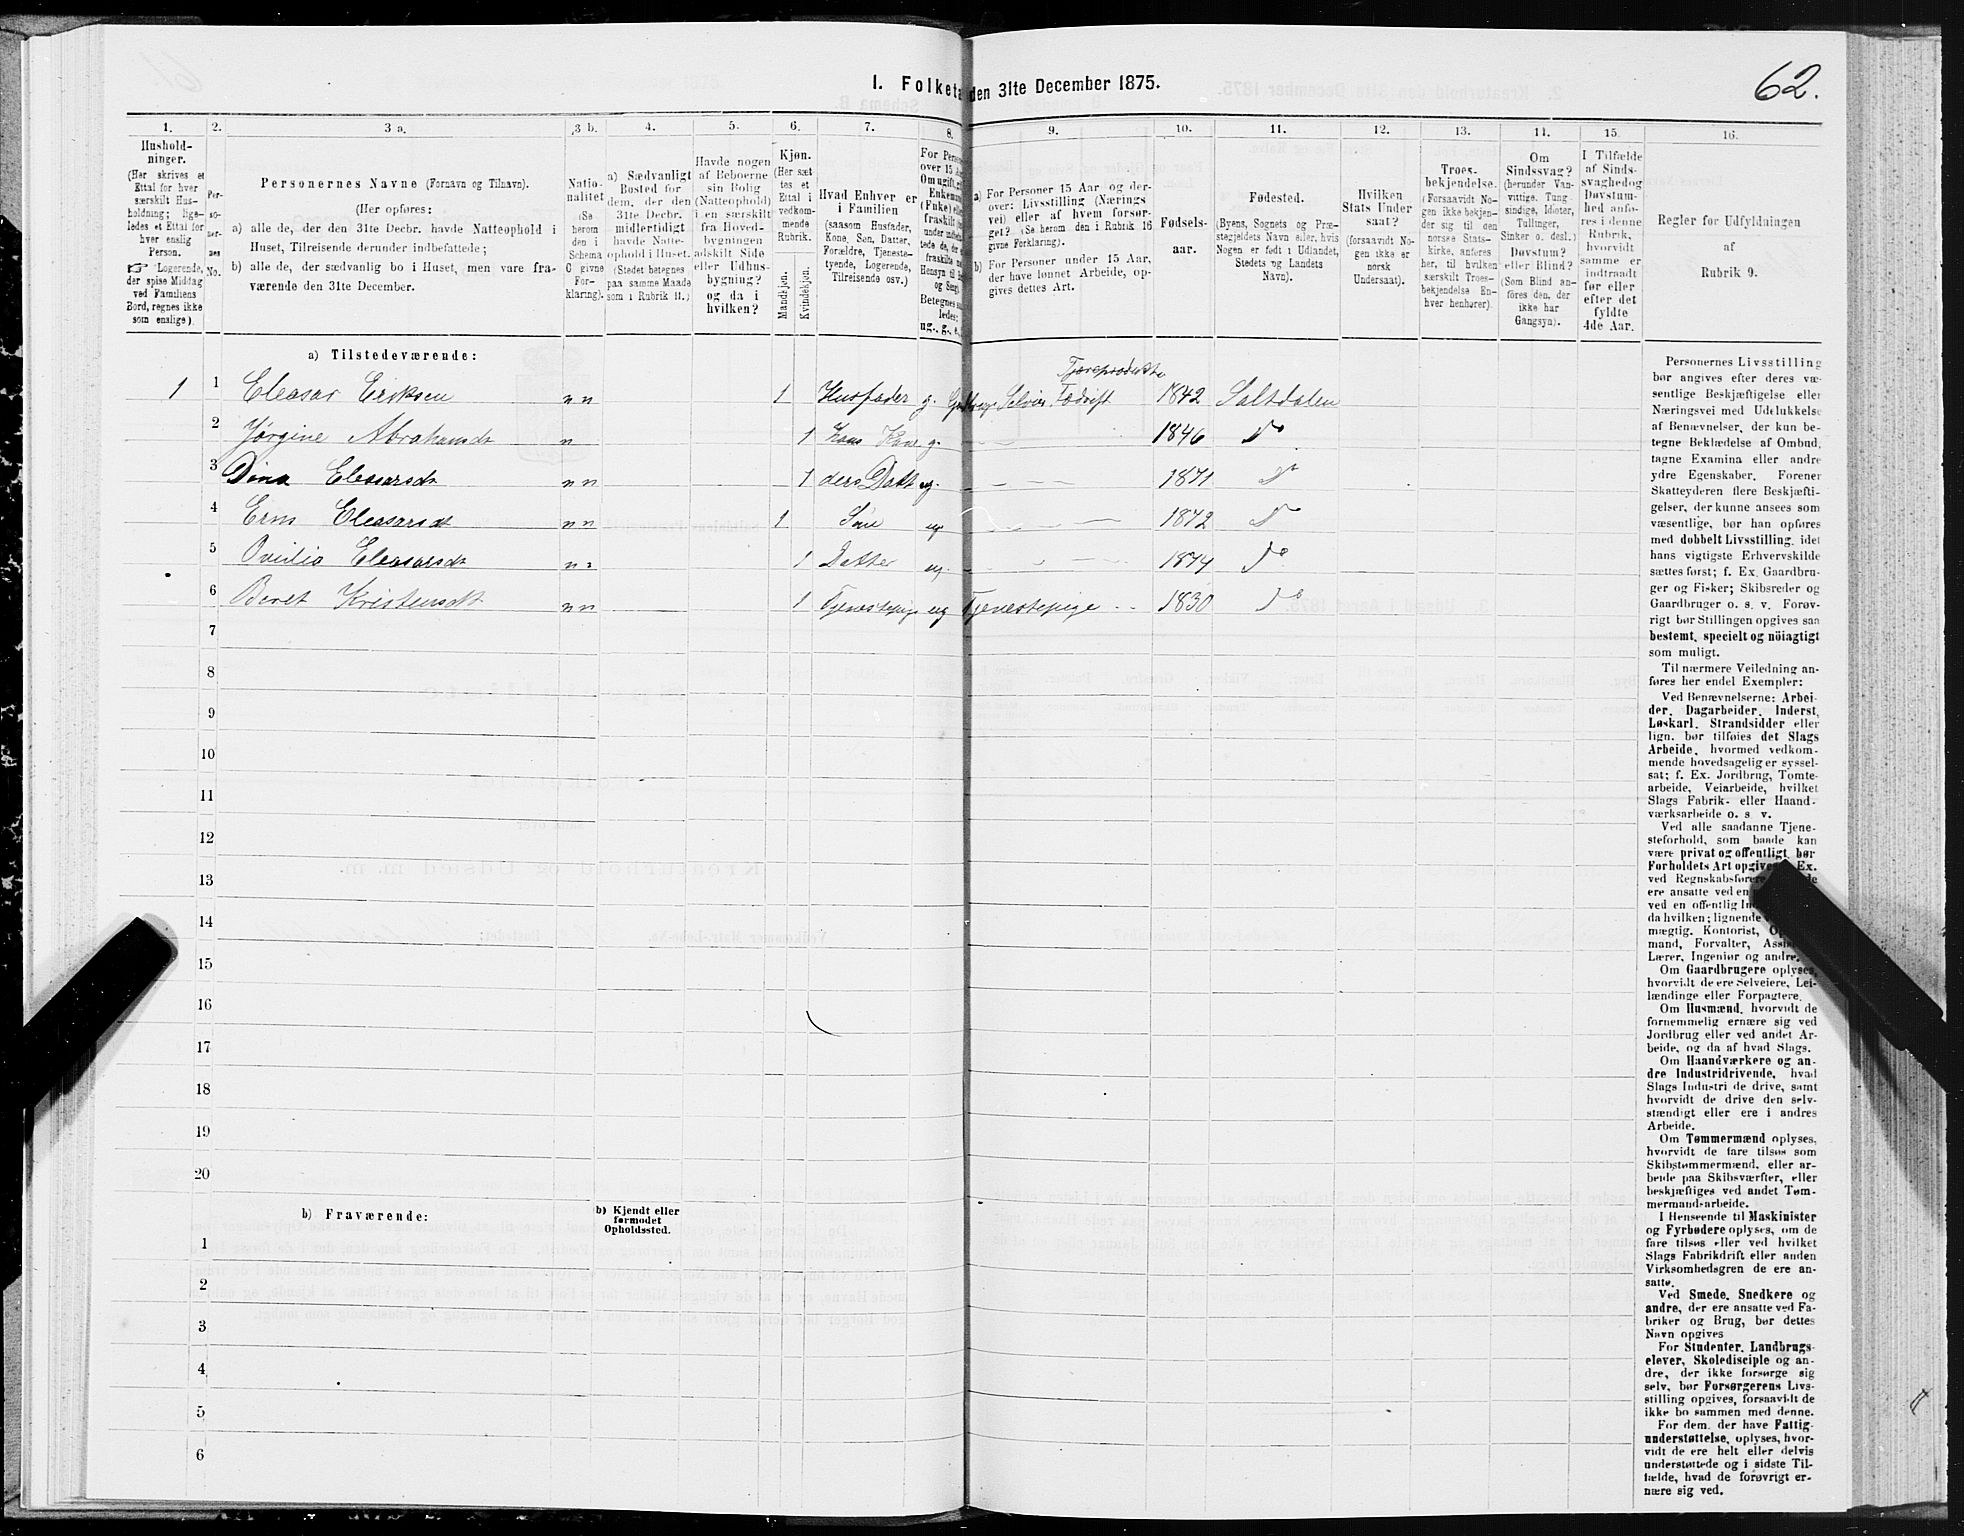 62.
I. Folketa den 31te December 1875.
1. 2. 3 a. 3 b. 4. 5. 6. 7. 8. 9. 10. 11. 12. 13. 14. 15. 16.
Hushold-
ninger.
(Her skrives et
Ettal for hver
særskilt Hus-
holdning; lige-
ledes et Ettal for
hver enslig
Person.
☞ Logerende,
der spise Middag
ved Familiens
Bord, regnes ikke
som enslige).
Per-
so-
ner-
nes
No.
Personernes Navne (Fornavn og Tilnavn).
(Her opføres:
a) alle de, der den 31te Decbr. havde Natteophold i
Huset, Tilreisende derunder indbefattede;
b) alle de, der sædvanlig bo i Huset, men vare fra-
værende den 31te December.
Natio-
nalitet
(Se
herom
den i
Schema
C givne
For-
klaring).
a) Sædvanligt
Bosted for
dem, der den
31te Decbr.
midlertidigt
havde Natte-
ophold i Huset.
(Stedet betegnes
paa samme Maade
som i Rubrik 11.)
Havde nogen
af Beboerne
sin Bolig
(Natteophold)
i en særskilt
fra Hoved-
bygningen
adskilt Side
eller Udhus-
bygning?
og da i
hvilken?
Kjøn.
(Her sæt
tes et
Ettal i
vedkom-
mende
Rubrik.
Mandkjøn.
Kvindekjøn.
Hvad Enhver er
i Familien
(saasom Husfader,
Kone, Søn, Datter,
Forældre, Tjeneste-
tyende, Logerende,
Tilreisende osv.)
For Pers
over 15 A
Om ugift, g
Enkema
(Fnke) elle
fraskilt
Betegnes sa
ledes;
ug., g., e.,
a) For Personer 15 Aar og der-
over: Livsstilling (Nærings
vei) eller af hvem forsør-
get? (Se herom den i Rubrik 16
givne Forklaring).
b) For Personer under 15 Aar,
der have lønnet Arbeide, op-
gives dettes Art.
Fødsels-
aar.
Fødested.
(Byens, Sognets og Præ-
stegjeldets Navn eller, hvis
Nogen er født i Udlandet,
Stedets og Landets
Navn).
Hvilken
Stats Under
saat?
(forsaavidt No-
gen ikke er
norsk
Undersaat).
Troes-
bekjendelse.
(Forsaavidt No-
gen ikke bekjen-
der sig til den
norske Stats-
kirke, anføres
her, til hvilken
særskilt Troes-
bekjendelse En-
hver henhører).
Om
Sindssvag?
(herunder Van-
vittige, Tung-
sindige, Idioter,
Tullinger,
Sinker o. desl.)
Døvstum?
eller Blind?
(Som Blind an-
føres den, der
ikke har
Gangsyn).
I Tilfælde
af Sinds-
svaghedog
Døvstum-
hed anfø-
res i denne
Rubrik,
hvorvidt
samme er
indtraadt
før eller
efter det
fyldte
4de Aar.
Regler for Udfyldningen
af
Rubrik 9.
a) Tilstedeværende:
Tjæreproduktn
1 1 Eleasar Eriksen n n 1 Husfader g. Gaardbrug. Selveier Fædrift 1842 Saltdalen
2 Jørgine Abrahamsdt n 1 Hans Kone g. 1846 Do
3 Dina Eleasarsdt n n 1 deres Datt ug. 1871 Do
4 Erns Eleasarsdt n n 1 Søn ug 1872 Do
5 Ovidia Eleasarsdt n n 1 Datter ug. 1874 Do
6 Beret Kristensdt n n 1 Tjenestepige ug Tjenestepige 1830 Do
7
8
9
10
11
12
13
14
15
16
17
18
19
20
b) Fraværende:
b) Kjendt eller
formodet
Opholdssted.
1
2
3
4
5
6
Personernes Livsstilling
bør angives efter deres væ-
sentlige Beskjæftigelse eller
Næringsvei med Udelukkelse
af Benævnelser, der kun be-
tegne Beklædelse af Ombud,
tagne Examina eller andre
ydre Egenskaber. Forener
Skatteyderen flere Beskjæfti-
gelser, der kunne ansees som
væsentlige, bør han opføres
med dobbelt Livsstilling, idet
hans vigtigste Erhvervskilde
sættes først; f. Ex. Gaardbru-
ger og Fisker; Skibsreder og
Gaardbruger o. s. v. Forøv-
rigt bør Stillingen opgives saa
bestemt, specielt og nöiagtigt
som muligt.
Til nærmere Veiledning an-
føres her endel Exempler:
Ved Benævnelserne: Arbei-
der, Dagarbeider, Inderst,
Løskarl, Strandsidder eller
lign. bør tilføies det Slags
Arbeide, hvormed vedkom-
mende hovedsagelig er syssel-
sat; f. Ex. Jordbrug, Tomte-
arbeide, Veiarbeide, hvilket
Slags Fabrik- eller Haand-
værksarbeide o. s v.
Ved alle saadanne Tjene-
steforhold, som baade kan
være privat og offentligt, bør
Forholdets Art opgives Ex.
ved Regnskabsføre de
ere ansatte ved en
ved en offentlig In
da hvilken; lignende
mægtig, Kontorist, Op
mand, Forvalter, Assis
Lærer, Ingeniør og andre.
Om Gaardbrugere oplyses,
hvorvidt de ere Selveiere, Lei-
lændinge eller Forpagtere.
Om Husmænd, hvorvidt de
fornemmelig ernære sig ved
Jordbrug eller ved andet Ar-
beide, og da af hvad Slags.
Om Haandværkere og an-
dre Industridrivende, hvad
Slags Industri de drive, samt
hvorvidt de drive den selv-
stændigt eller ere i andres
Arbeide.
Om Tømmermænd oplyses,
hvorvidt de fare tilsøs som
Skibstømmermænd, eller ar-
beide paa Skibsværfter, eller
beskjæftiges ved andet Tøm-
mermandsarbeide.
I Henseende til Maskinister
og Fyrbødere oplyses, om de
fare tilsøs eller ved hvilket
Slags Fabrikdrift eller anden
Virksomhedsgren de ere an-
satte.
Ved Smede, Snedkere og
andre, der ere ansatte ved Fa-
briker og Brug, bør dettes
Navn opgives
For Studenter, Landbrugs-
elever, Skoledisciple og an-
dre, der ikke forsørge sig
selv, bør Forsørgerens Livs-
stilling opgives, forsaavidt de
ikke bo sammen med denne.
For dem, der have Fattig-
understøttelse, oplyses, hvor-
vidt de ere helt eller delvis
understøttede og i sidste Til-
fælde, hvad de forøvrigt er-
nære sig ved.